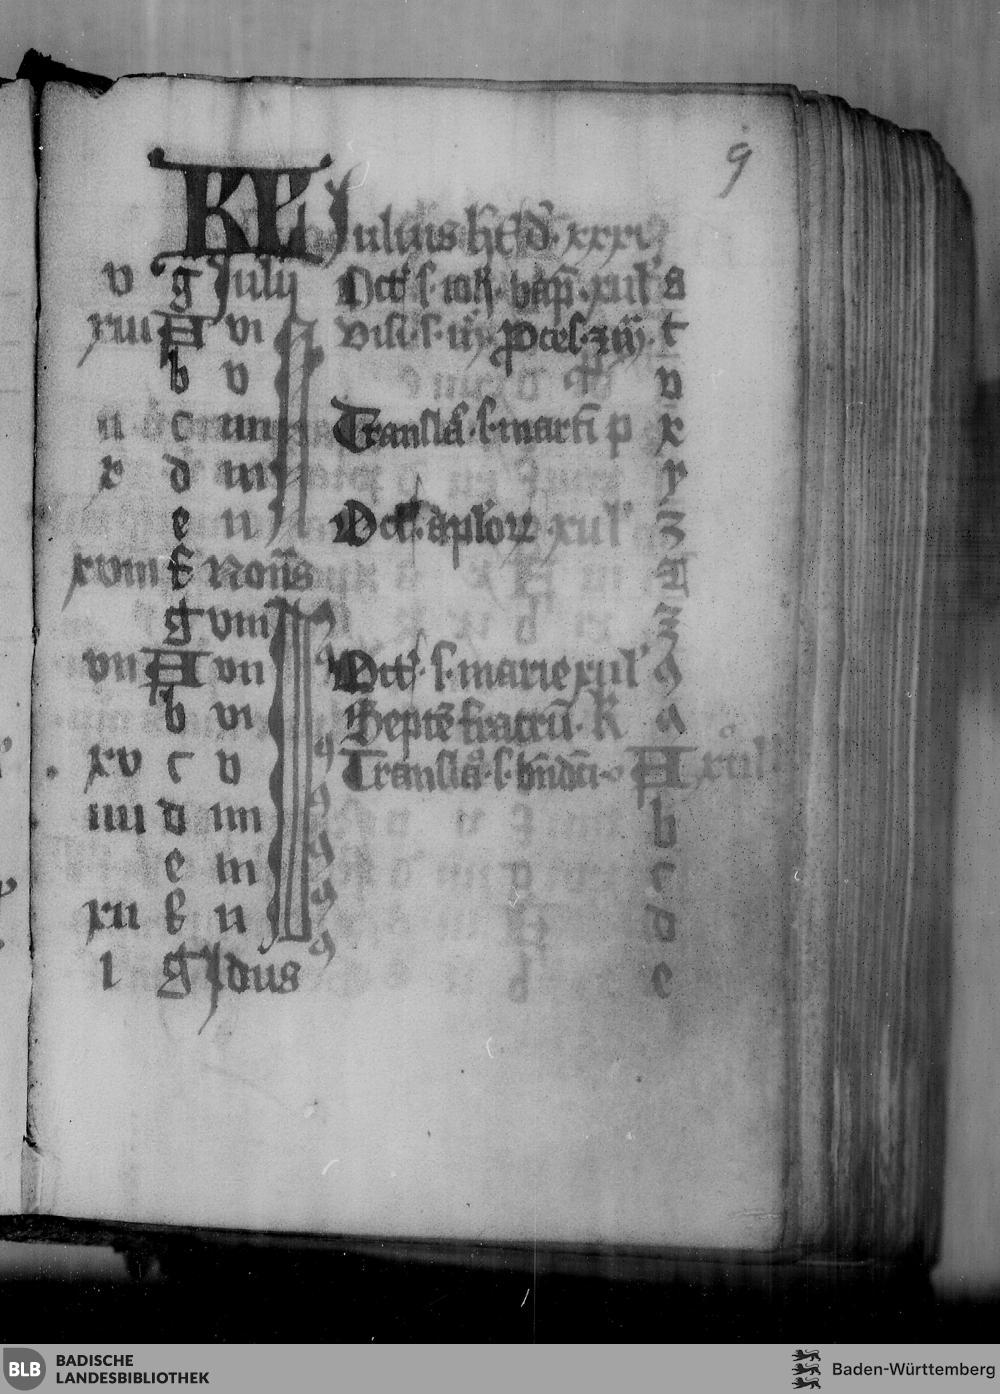 9
KL Julius hēt d̄. xxxi
v g Julij Oct̄ s. ioh. bap̄. xuł s
xiii A vi Visi. s. m̄. p̄ces. z m̄. t
b v v
ii c iiii Translā. s. martī p x
x d iii y
e ii Oct̄. apl̄oꝝ xuł z
xviii f Nonas
g viii
vii A vii Oct̄. s. marie xuł 9
b vi Septē fratrū. K a
xv c v Translā. s. bn̄dc̄i. A xuł
iiii d iiii b
e iii c
xii f ii d
i g Idus e
BLB BADISCHE LANDESBIBLIOTHEK
Baden-Württemberg